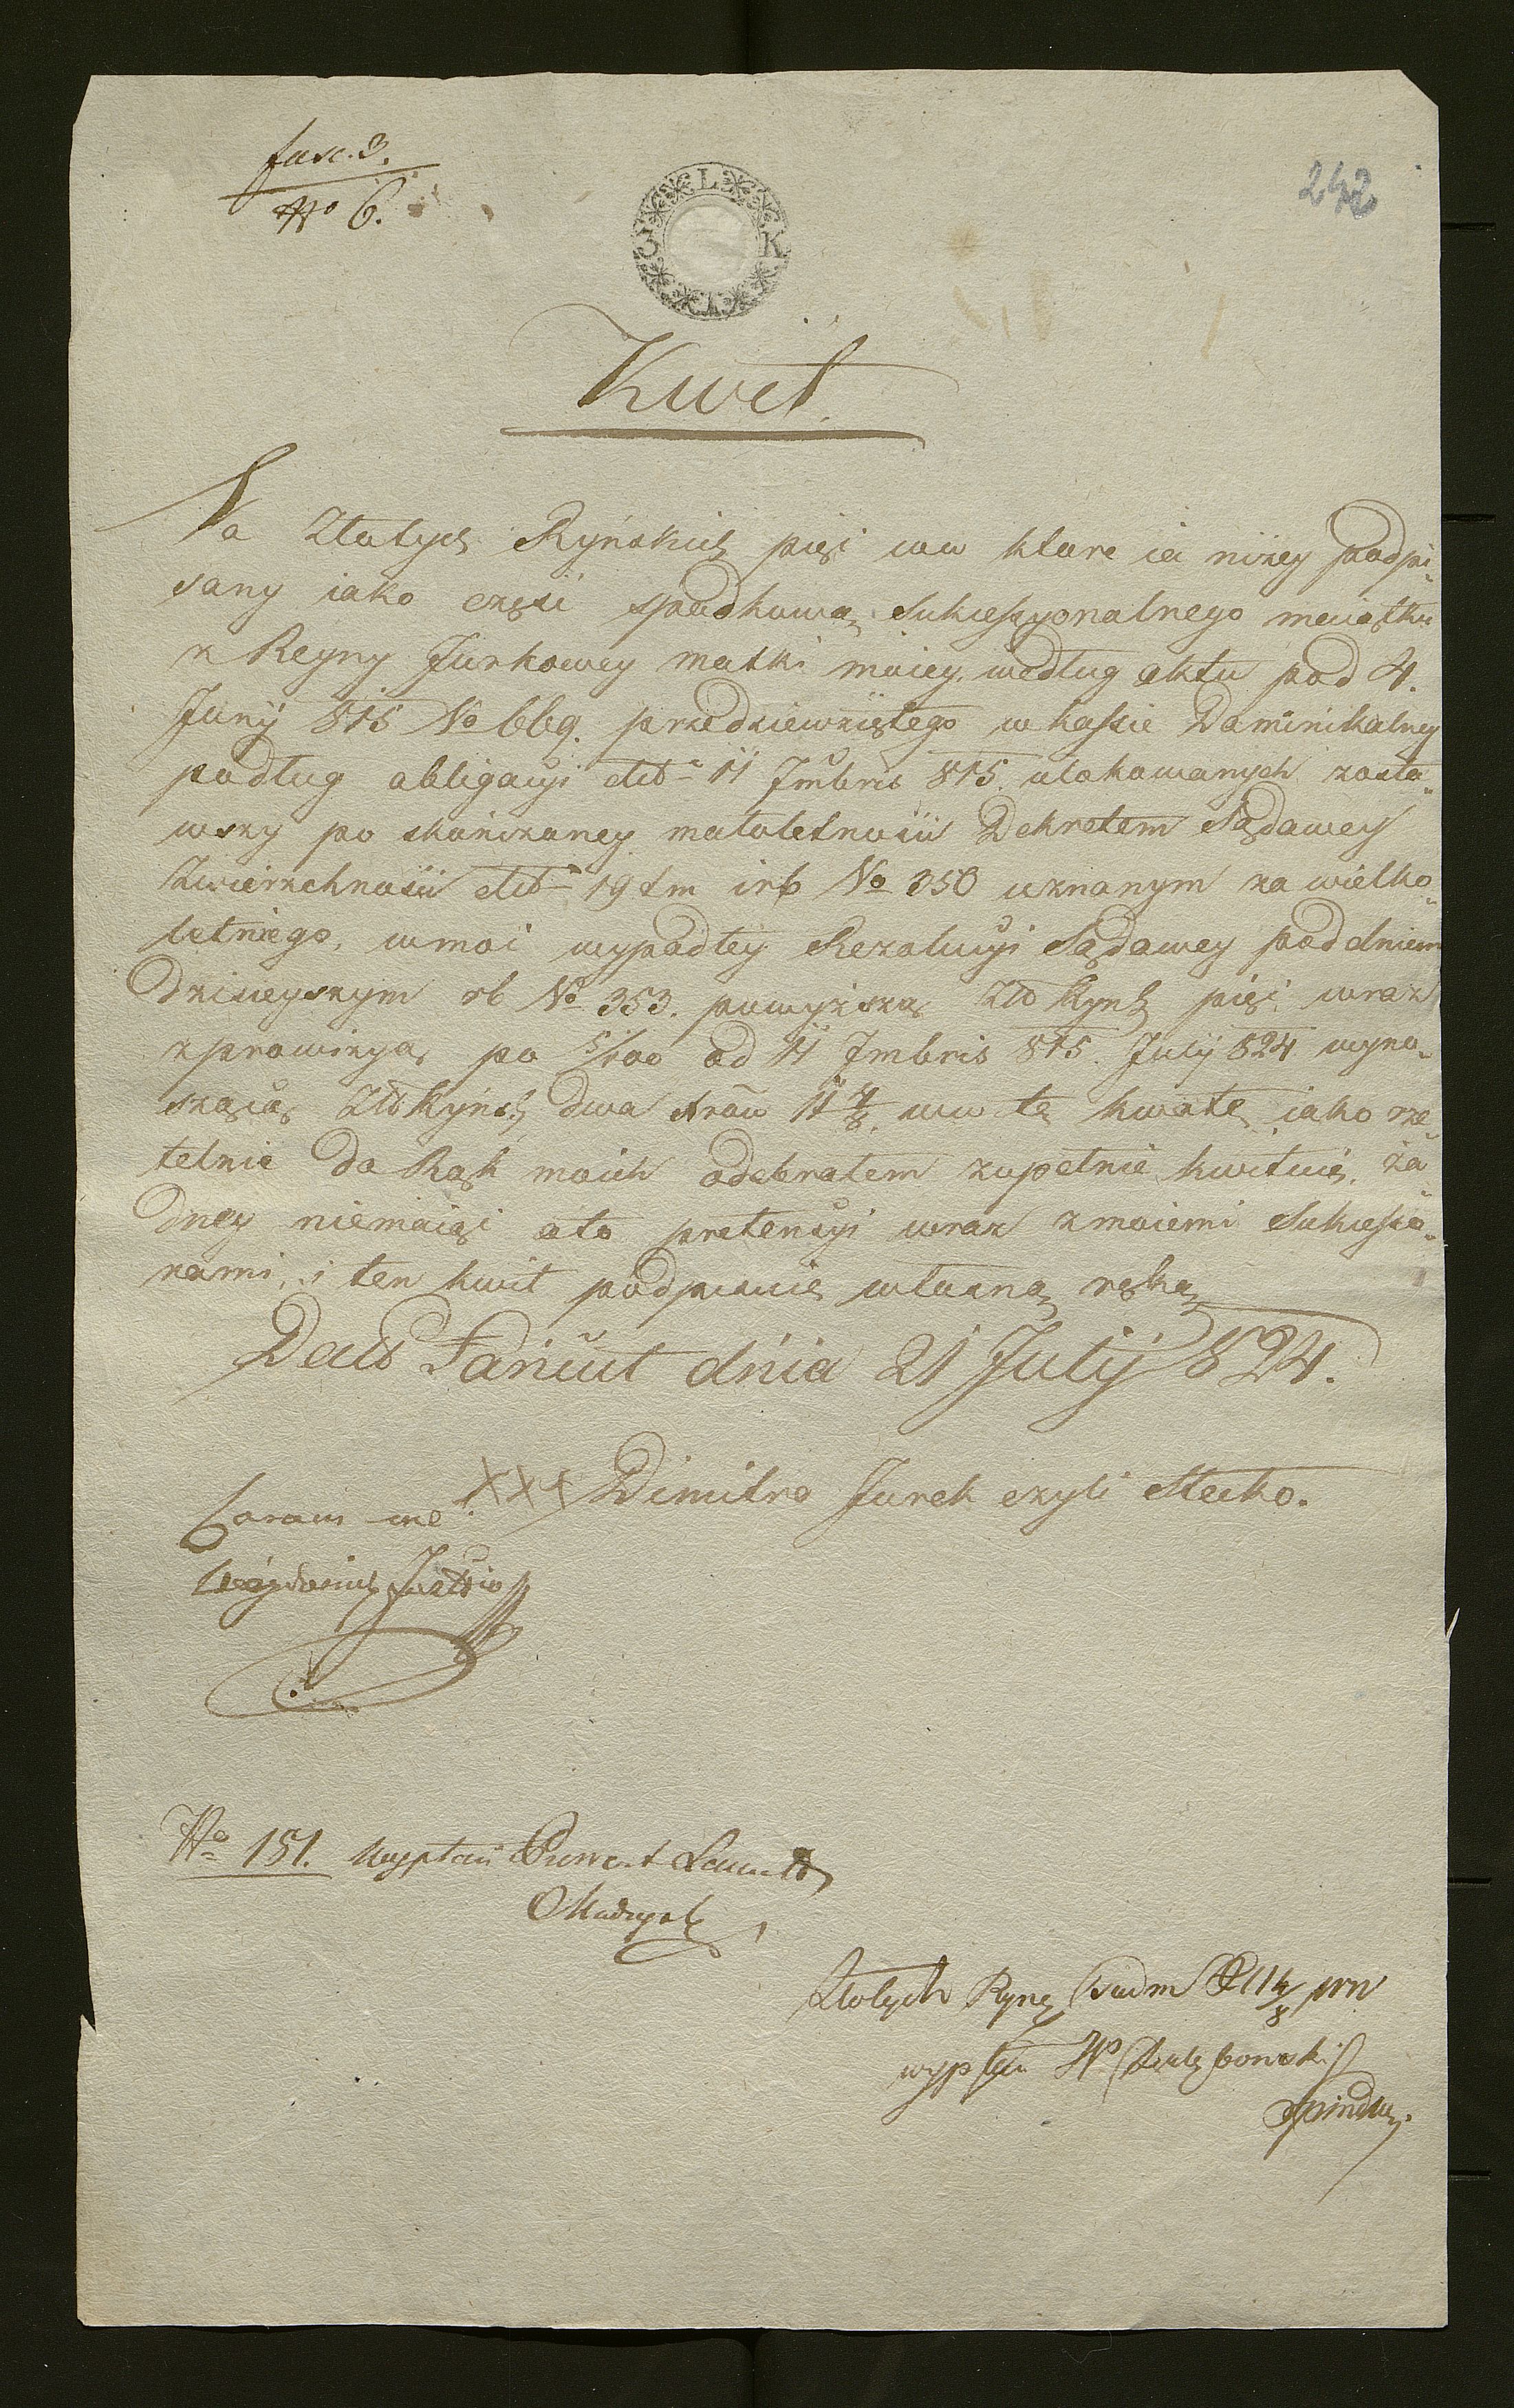 fasc. 3.
No 6.
242
3 L K
Kwit.
Na Złotych Ryńskich pięć ww które ia niżey podpi-
sany iako część spadkową Sukcessyonalnego maiątku
z Reyny Jurkowey matki moiey według aktu pod 4.
Junÿ 815 No 669. przedziewziętego w kassie Dominikalney
podług obligacyi ddto 11 7mbris 815. ulokowanych zosta-
wszy po skończoney małoletności Dekretem Sądowey
Zwierzchności ddto 19 tm irb No 350 uznanym za wielko-
letniego, wmoc wypadłey Rezolucyi Sądowey pod dniem
Dzisieyszym rb No 353. powyższą Złł Ryńs pięć wraz
zprowizyą po 5/100 od 11 7mbris 815. Julÿ 824 wyno-
szącą Złł Ryńs dwa xrów 11 4/8. ww tę kwotę iako rze-
telnie do Rąk moich odebrałem zupełnie kwituię, ża-
dney niemaiąc oto pretensyi wraz zmoiemi Sukcesso-
rami, i ten kwit podpisuię własną ręką
Datt Łańcut dnia 21 Julÿ 824.
XXX Dimitro Jurek czyli Stecko.
Coram me
Justic
No 151. wypłaci Purrent
Złotych Ryns 11 4/8 ww
wypłaci